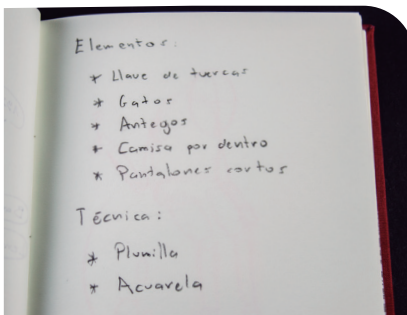 Elementos:
* Llave de tuercas
* Gatos
* Antegos
* Camisa por dentro
* Pantalones cortos
Técnica:
* Plumilla
* Acuarela